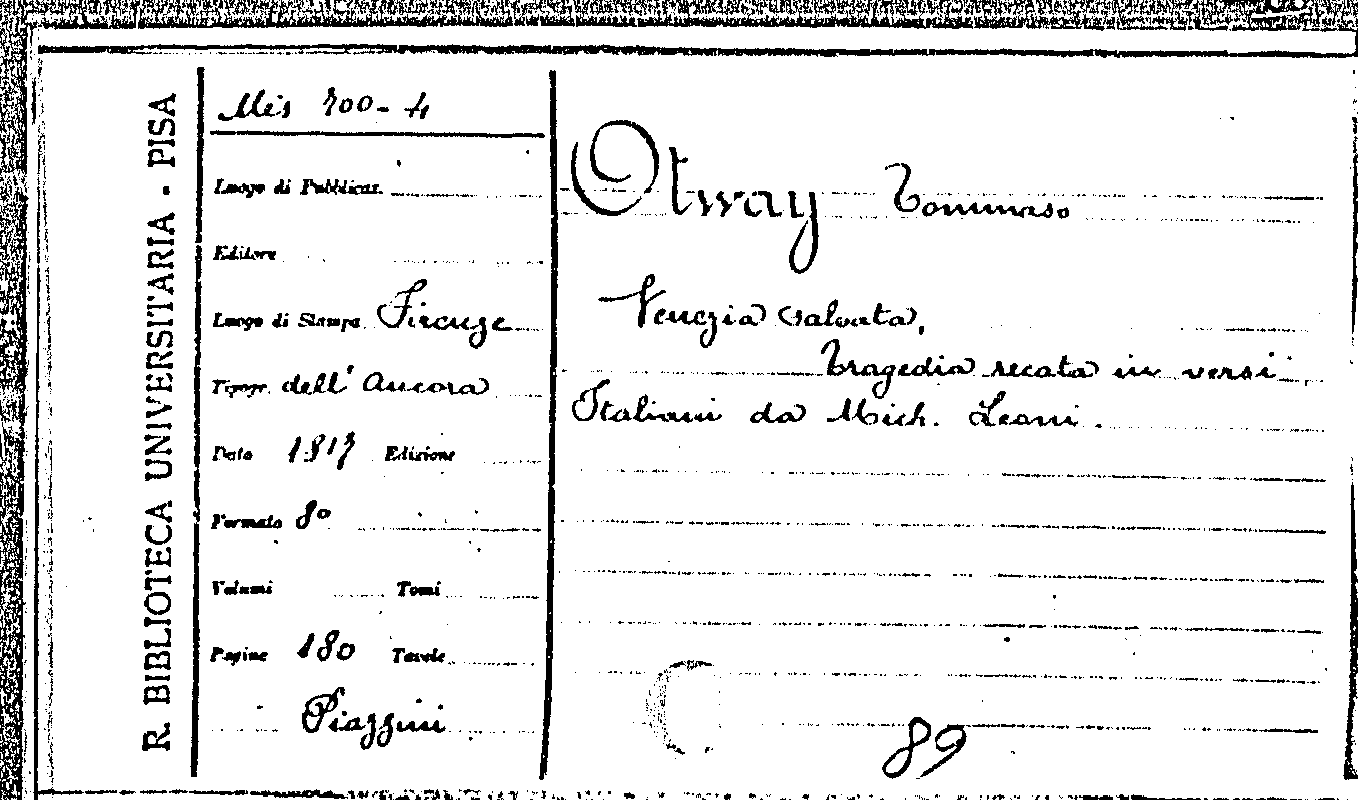 R. BIBLIOTECA UNIVERSITARIA - PISA
Mis 700-4
Luogo di Pubblicaz.
Editore
Luogo di Stampa Firenze
Tipogr. dell' Ancora
Data 1817 Edizione
Formato 8º
Volumi Tomi
Pagine 180 Tavole
Piazzini
Otway Tommaso
Venezia salvata,
tragedia recata in versi
Italiani da Mich. Leoni.
89